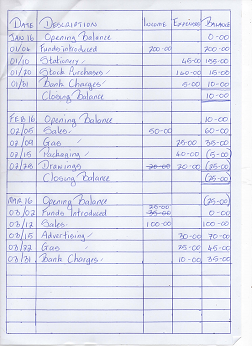 DATE DESCRIPTION INCOME EXPENSES BALANCE
JAN 16 Opening Balance 0-00
01/04 Funds introduced 200-00 200-00
01/10 Stationery ✓ 45-00 155-00
01/20 Stock Purchases ✓ 140-00 15-00
01/31 Bank Charges ✓ 5-00 10-00
Closing Balance 10-00
FEB 16 Opening Balance 10-00
02/05 Sales 50-00 60-00
02/09 Gas ✓ 25-00 35-00
02/15 Packaging ✓ 40-00 (5-00)
02/28 Drawings 20-00 (25-00)
Closing Balance (25-00)
MAR 16 Opening Balance (25-00)
03/02 Funds Introduced 25-00 0-00
03/12 Sales 100-00 100-00
03/15 Advertising ✓ 30-00 70-00
03/22 Gas ✓ 25-00 45-00
03/31 Bank Charges ✓ 10-00 35-00